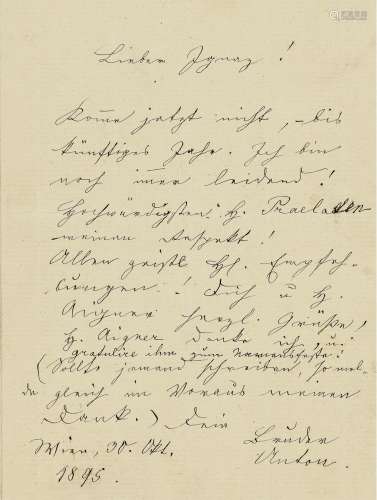 Lieber Ignaz!
Komme jetzt nicht, – bis
künftiges Jahr. Ich bin
noch imer leidend!
Hochwürdigsten H. Praelaten
meinen Respekt!
Allen geistl. HH. Empfeh-
lungen! Dich u H.
Aigner herzl. Grüße,
H. Aigner danke ich, u:
gratulire ihm zum Namensfeste!
(Sollte jemand schreiben, so mel-
de gleich im Voraus meinen
Dank.) Dein
Bruder
Wien, 30. Okt.
Anton.
1895.